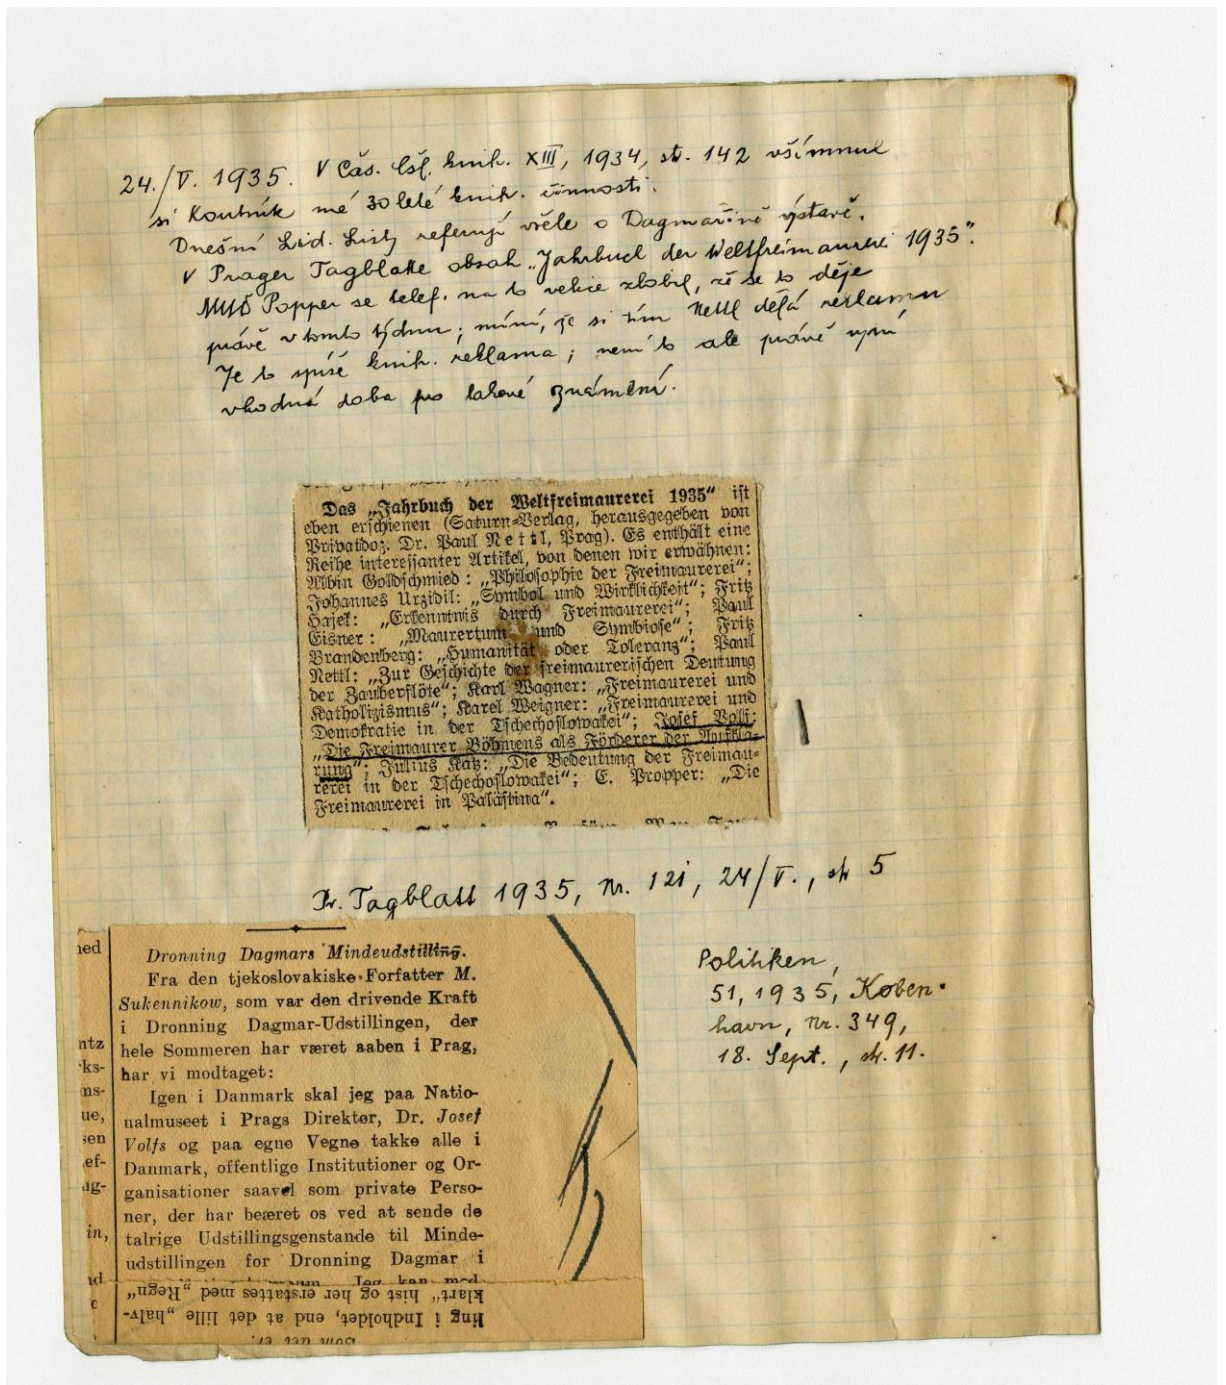 24./V. 1935. V Čas. čsl. knih. XIII, 1934, st. 142 všimnul
si Koutník mé 30 leté knih. činnosti.
Dnešní Lid. Listy referují vřele o Dagmařině výstavě.
V Prager Tagblatte obsah „Jahrbuch der Weltfreimaurerei 1935“.
MUD Popper se telef. na to velice zlobil, že se to děje
právě v tomto týdnu; míní, že si tím Nettl dělá reklamu
Je to spíše knih. reklama; není to ale právě nyní
vhodná doba pro takové známění.
Das „Jahrbuch der Weltfreimaurerei 1935“ ist
eben erschienen (Saturn-Verlag, herausgegeben von
Privatdoz. Dr. Paul Nettl, Prag). Es enthält eine
Reihe interessanter Artikel, von denen wir erwähnen:
Albin Goldschmied: „Philosophie der Freimaurerei“;
Johannes Urzidil: „Symbol und Wirklichkeit“; Fritz
Hajek: „Erkenntnis durch Freimaurerei“; Paul
Eisner: „Maurertum und Symbiose“; Fritz
Brandenberg: „Humanität oder Toleranz“; Paul
Nettl: „Zur Geschichte der freimaurerischen Deutung
der Zauberflöte“; Karl Wagner: „Freimaurerei und
Katholizismus“; Karel Weigner: „Freimaurerei und
Demokratie in der Tschechoslowakei“; Josef Volf:
„Die Freimaurer Böhmens als Förderer der Aufklä-
rung“; Julius Katz: „Die Bedeutung der Freimau-
rerei in der Tschechoslowakei“; E. Propper: „Die
Freimaurerei in Palästina“.
Pr. Tagblatt 1935, Nr. 121, 24/V., str 5
Dronning Dagmars Mindeudstilling.
Fra den tjekoslovakiske Forfatter M.
Sukennikow, som var den drivende Kraft
i Dronning Dagmar-Udstillingen, der
hele Sommeren har været aaben i Prag,
har vi modtaget:
Igen i Danmark skal jeg paa Natio-
nalmuseet i Prags Direktør, Dr. Josef
Volfs og paa egne Vegne takke alle i
Danmark, offentlige Institutioner og Or-
ganisationer saavel som private Perso-
ner, der har beæret os ved at sende de
talrige Udstillingsgenstande til Minde-
udstillingen for Dronning Dagmar i
Jeg kan med
klart“ hist og her erstattes med „Regn“
ling i Indholdet, end at det lille „halv-
Som det er.
ned
ntz
rks-
ms-
ue,
sen
ef-
ng-
in,
Politiken,
51, 1935, Køben-
havn, Nr. 349,
18. Sept., str. 11.